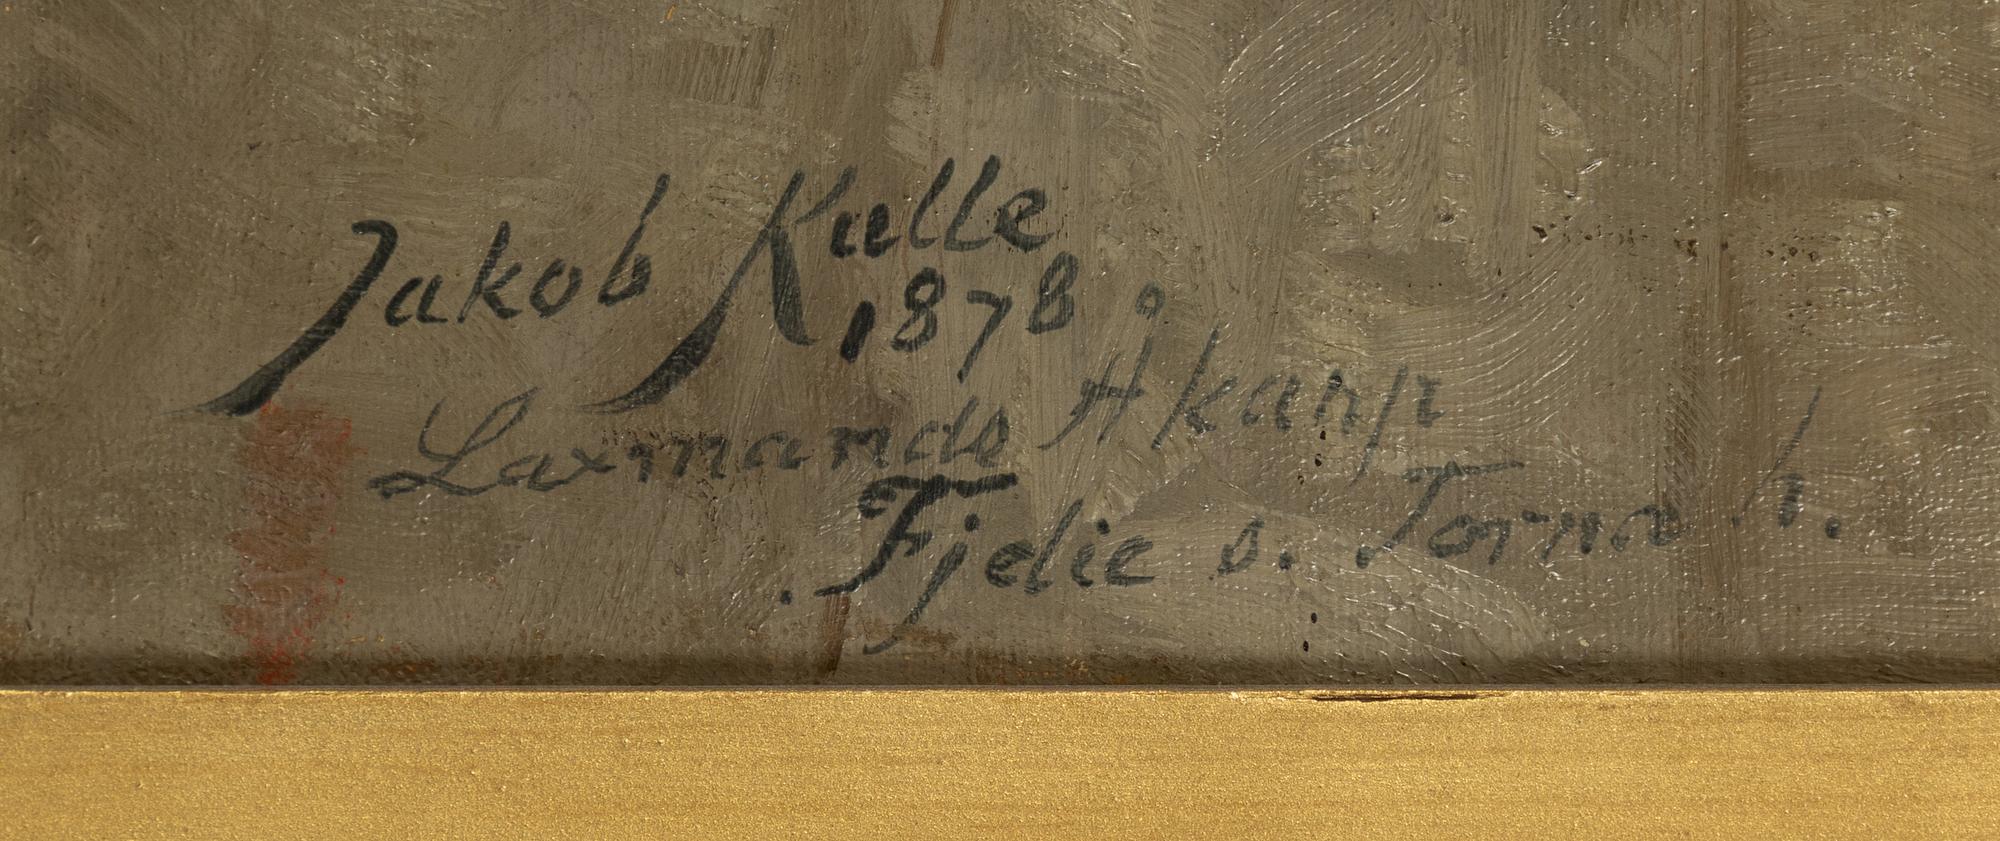 Jakob Kulle
1878
Laxmands Åkarp
Fjelie s. Torna h.